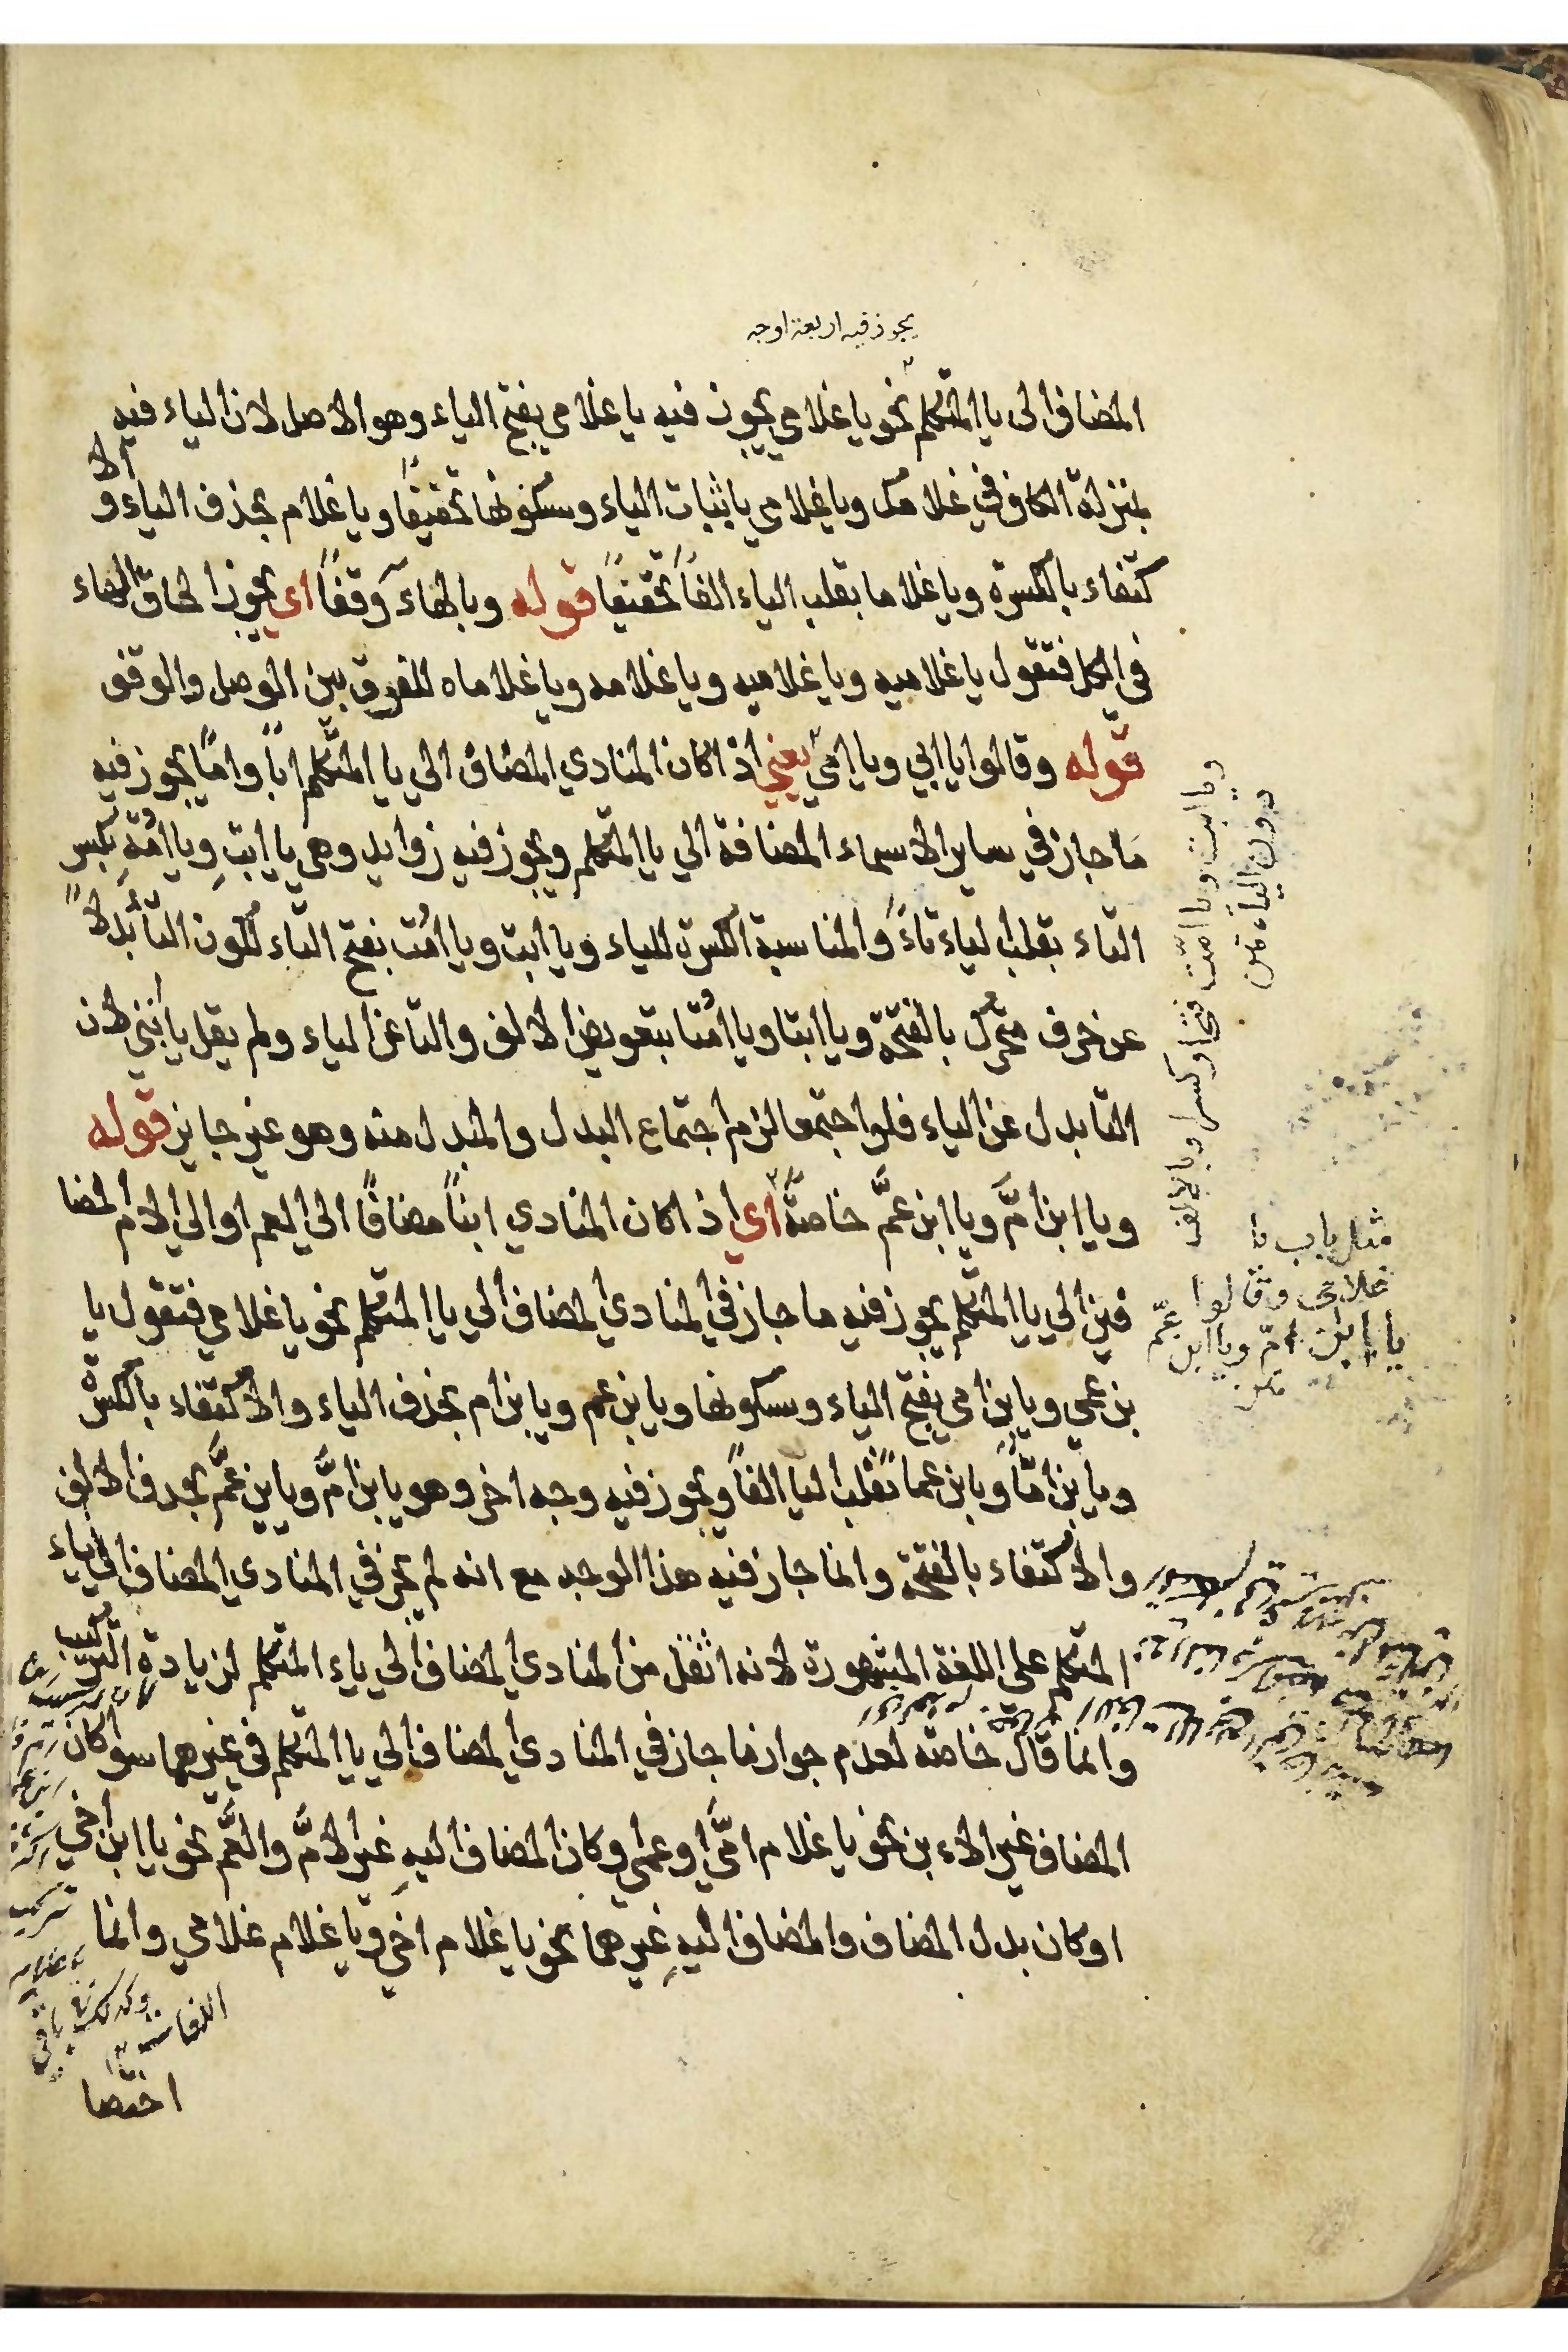 يجوز فيه اربعة اوجه
المضاف الى يا المتكلم نحو يا غلامي يجوز فيه يا غلامي بفتح الياء وهو الاصل لان الياء فيه
بمنزلة الكاف في غلامك ويا غلامي يا ثبات الياء وسكونها تخفيفًا ويا غلام بحذف الياء و الا
كتفاء بالكسرة ويا غلاما بقلب الياء الفًا تخفيفًا قوله وبالهاء وقفًا اي يجوز الحاق الهاء
في الكل فتقول يا غلاميه ويا غلاميه ويا غلامه ويا غلاماه للفرق بين الوصل والوقف
قوله وقالوا يا ابي ويا امي يعني اذ اكان المنادي المضاف الي يا المتكلم ابًا وامًا يجوز فيه
ما جاز في ساير الاسماء المضافة الي يا المتكلم ويجوز فيه زوايد وهي يا ابتِ ويا امّةِ بكسر
التاء بقلب الياء تاءً والمناسبة الكسرة للياء ويا ابت ويا امّت بفتح التاء لكون التا بدلاً
عن حرف متحرك بالفتحة ويا ابتا ويا امّتا بتعويض الالف والتا عن الياء ولم يقل يا ابتي لان
التا بدل عن الياء فلو اجتمعا لزم اجتماع البدل والمبدل منه وهو غير جايز قوله
ويا ابن امَّ ويا ابن عمَّ خاصةً اي اذ اكان المنادي ابنًا مضافًا الي العم او الي الام المضا
فين الي يا المتكلم يجوز فيه ما جاز في المنادي المضاف الي يا المتكلم نحو يا غلامي فتقول يا
بن عمي ويا بن امي بفتح الياء وسكونها ويا بن عم ويا بن ام بحذف الياء والاكتفاء بالكسرة
ويا بن امّا ويا بن عما بقلب اليا الفًا ويجوز فيه وجه اخر وهو يا بن امَّ ويا بن عمَّ بحذف الالف
والاكتفاء بالفتحة وانما جاز فيه هذا الوجه مع انه لم يجز في المنادي المضاف الي ياء
المتكلم على اللغة المشهورة لانه اثقل من المنادي المضاف الي ياء المتكلم لزيادة التركيب
وانما قال خاصة لعدم جواز ما جاز في المنادي المضاف الي يا المتكلم في غيرهما سوا كان
المضاف غير الابن نحو يا غلام امّي او عمي وكان المضاف اليه غير الامّ والعمّ نحو يا ابن اخي
او كان بدل المضاف والمضاف اليه غيرهما نحو يا غلام اخي ويا غلام غلامي وانما
اختصا
ويا ابت ويا امّت فتحا وكسرا وبالالف
دون الياء متن
مثل باب يا
غلامي وقالوا
يا ابن امّ ويا ابن عمّ
متن